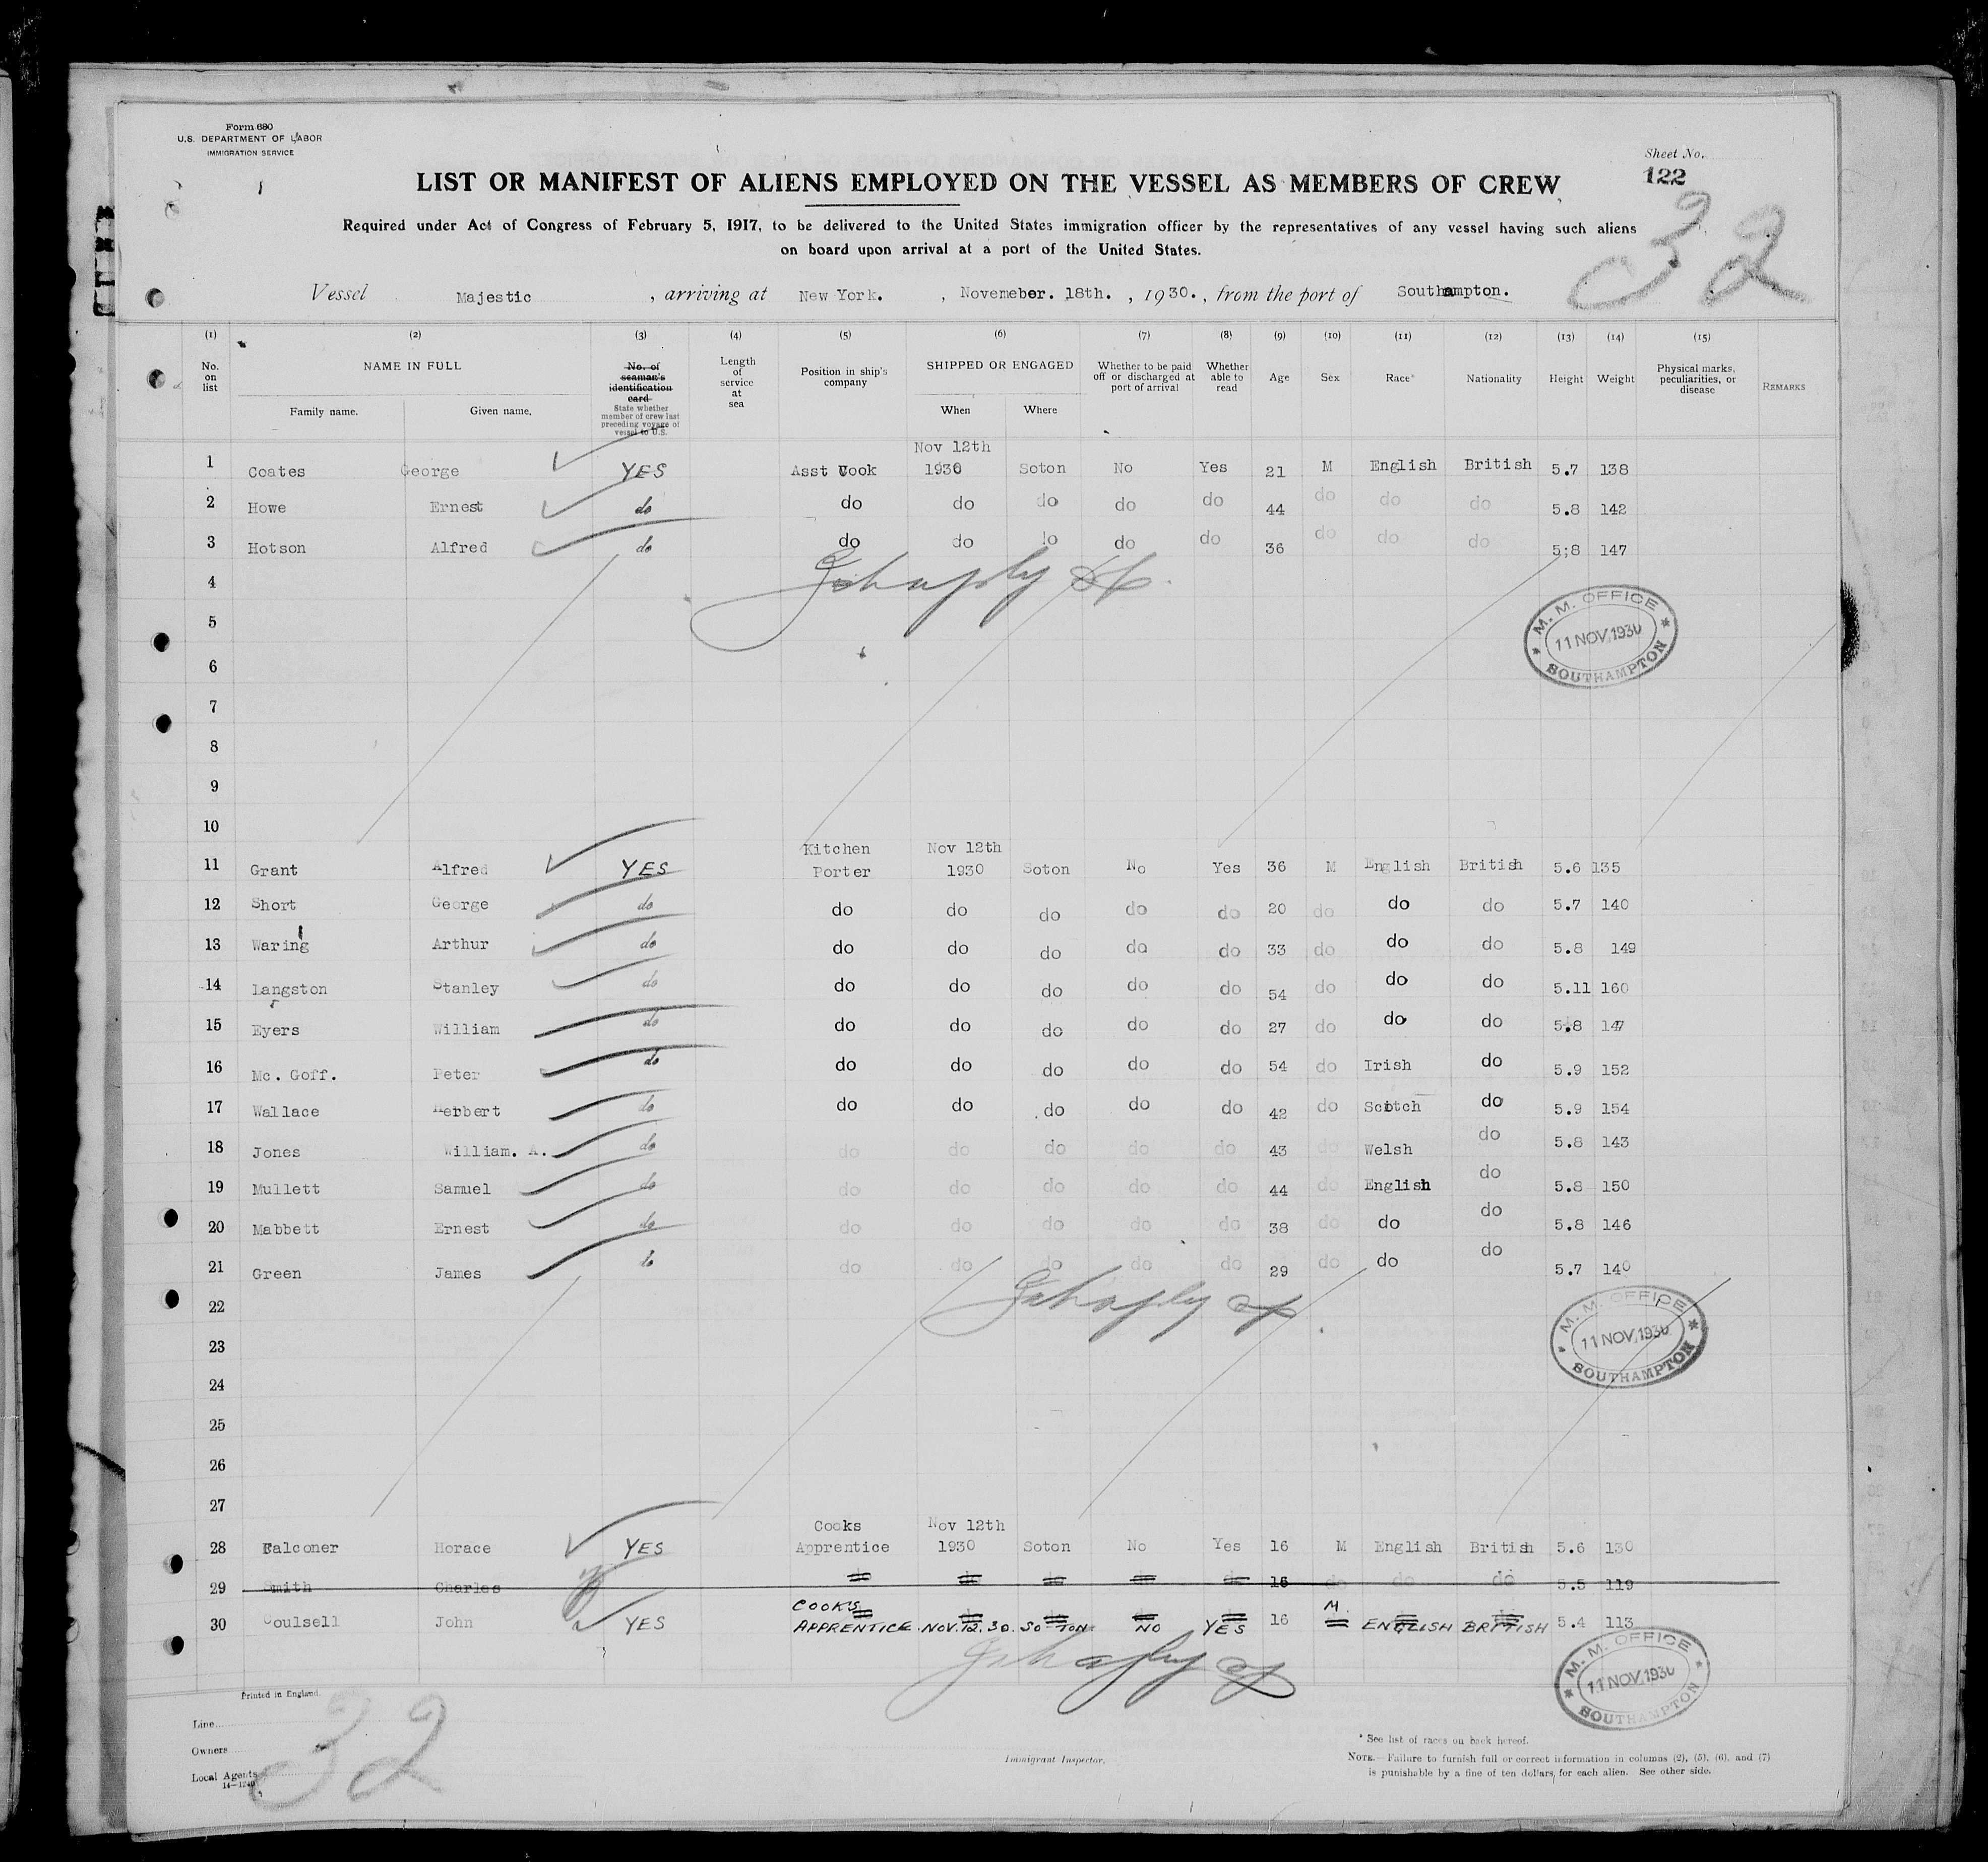 Form 680
U.S. DEPARTMENT OF LABOR
IMMIGRATION SERVICE
Sheet No.
122
32
LIST OR MANIFEST OF ALIENS EMPLOYED ON THE VESSEL AS MEMBERS OF CREW
Required under Act of Congress of February 5, 1917, to be delivered to the United States immigration officer by the representatives of any vessel having such aliens
on board upon arrival at a port of the United States.
Vessel Majestic , arriving at New York. , Novemeber. 18th. , 1930. , from the port of Southampton.
(1) (2) (3) (4) (5) (6) (7) (8) (9) (10) (11) (12) (13) (14) (15)
No. on list NAME IN FULL Family name. Given name. No. of seaman's identification card State whether member of crew last preceding voyage of vessel to U.S. Length of service at sea Position in ship's company SHIPPED OR ENGAGED When Where Whether to be paid off or discharged at port of arrival Whether able to read Age Sex Race* Nationality Height Weight Physical marks, peculiarities, or disease REMARKS
Nov 12th
1 Coates George YES Asst Cook 1930 Soton No Yes 21 M English British 5.7 138
2 Howe Ernest do do do do do do 44 do do do 5.8 142
3 Hotson Alfred do do do do do do 36 do do do 5;8 147
4
5
M. M. OFFICE
11 NOV. 1930
SOUTHAMPTON
6
7
8
9
10
Kitchen Nov 12th
11 Grant Alfred YES Porter 1930 Soton No Yes 36 M English British 5.6 135
12 Short George do do do do do do 20 do do do 5.7 140
13 Waring Arthur do do do do do do 33 do do do 5.8 149
14 Langston Stanley do do do do do do 54 do do do 5.11 160
15 Eyers William do do do do do do 27 do do do 5.8 147
16 Mc. Goff. Peter do do do do do do 54 do Irish do 5.9 152
17 Wallace Herbert do do do do do do 42 do Scotch do 5.9 154
18 Jones William. A. do do do do do do 43 do Welsh do 5.8 143
19 Mullett Samuel do do do do do do 44 do English do 5.8 150
20 Mabbett Ernest do do do do do do 38 do do do 5.8 146
21 Green James do do do do do do 29 do do do 5.7 140
22
23
M. M. OFFICE
11 NOV. 1930
SOUTHAMPTON
24
25
26
27
Cooks Nov 12th
28 Falconer Horace YES Apprentice 1930 Soton No Yes 16 M English British 5.6 130
29 Smith Charles do do do do do 16 do do do 5.5 119
COOKS M.
30 Coulsell John YES APPRENTICE NOV. 12. 30. SO TON NO YES 16 ENGLISH BRITISH 5.4 113
M. M. OFFICE
11 NOV. 1930
SOUTHAMPTON
Printed in England.
32
Line
Owners
Local Agents
14-1240
Immigrant Inspector.
* See list of races on back hereof.
NOTE.—Failure to furnish full or correct information in columns (2), (5), (6), and (7)
is punishable by a fine of ten dollars for each alien. See other side.